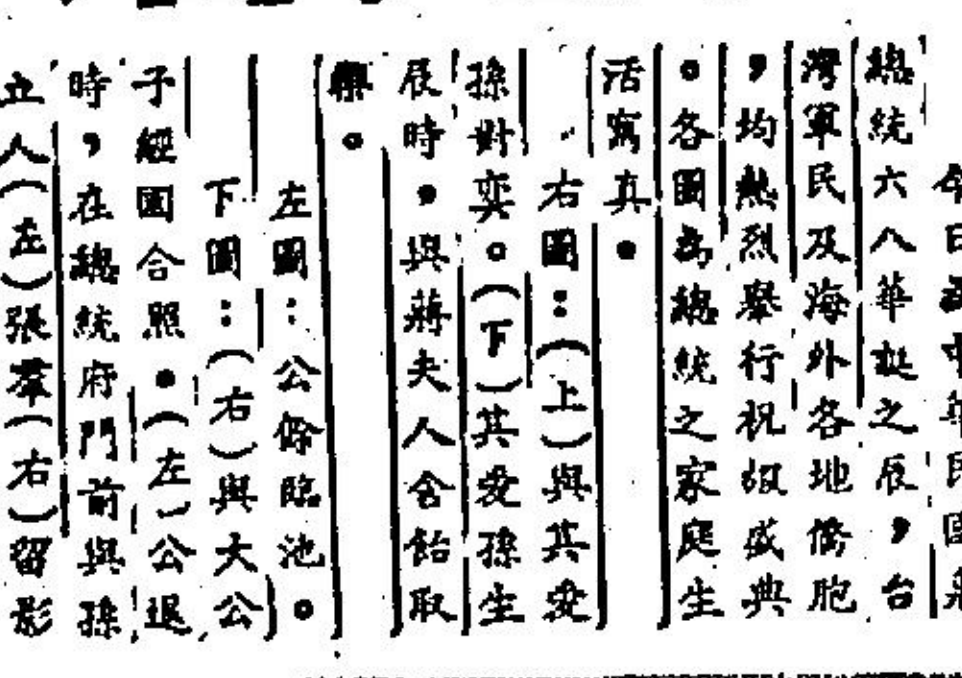 今日為中華民國蔣
總統六八華誕之辰，台
灣軍民及海外各地僑胞
，均熱烈舉行祝嘏盛典
。各圖為總統之家庭生
活寫真。
右圖：（上）與其愛
孫對奕。（下）其愛孫生
辰時，與蔣夫人含飴取
樂。
左圖：公餘臨池。
下圖：（右）與大公
子經國合照。（左）公退
時，在總統府門前與孫
立人（左）張羣（右）留影